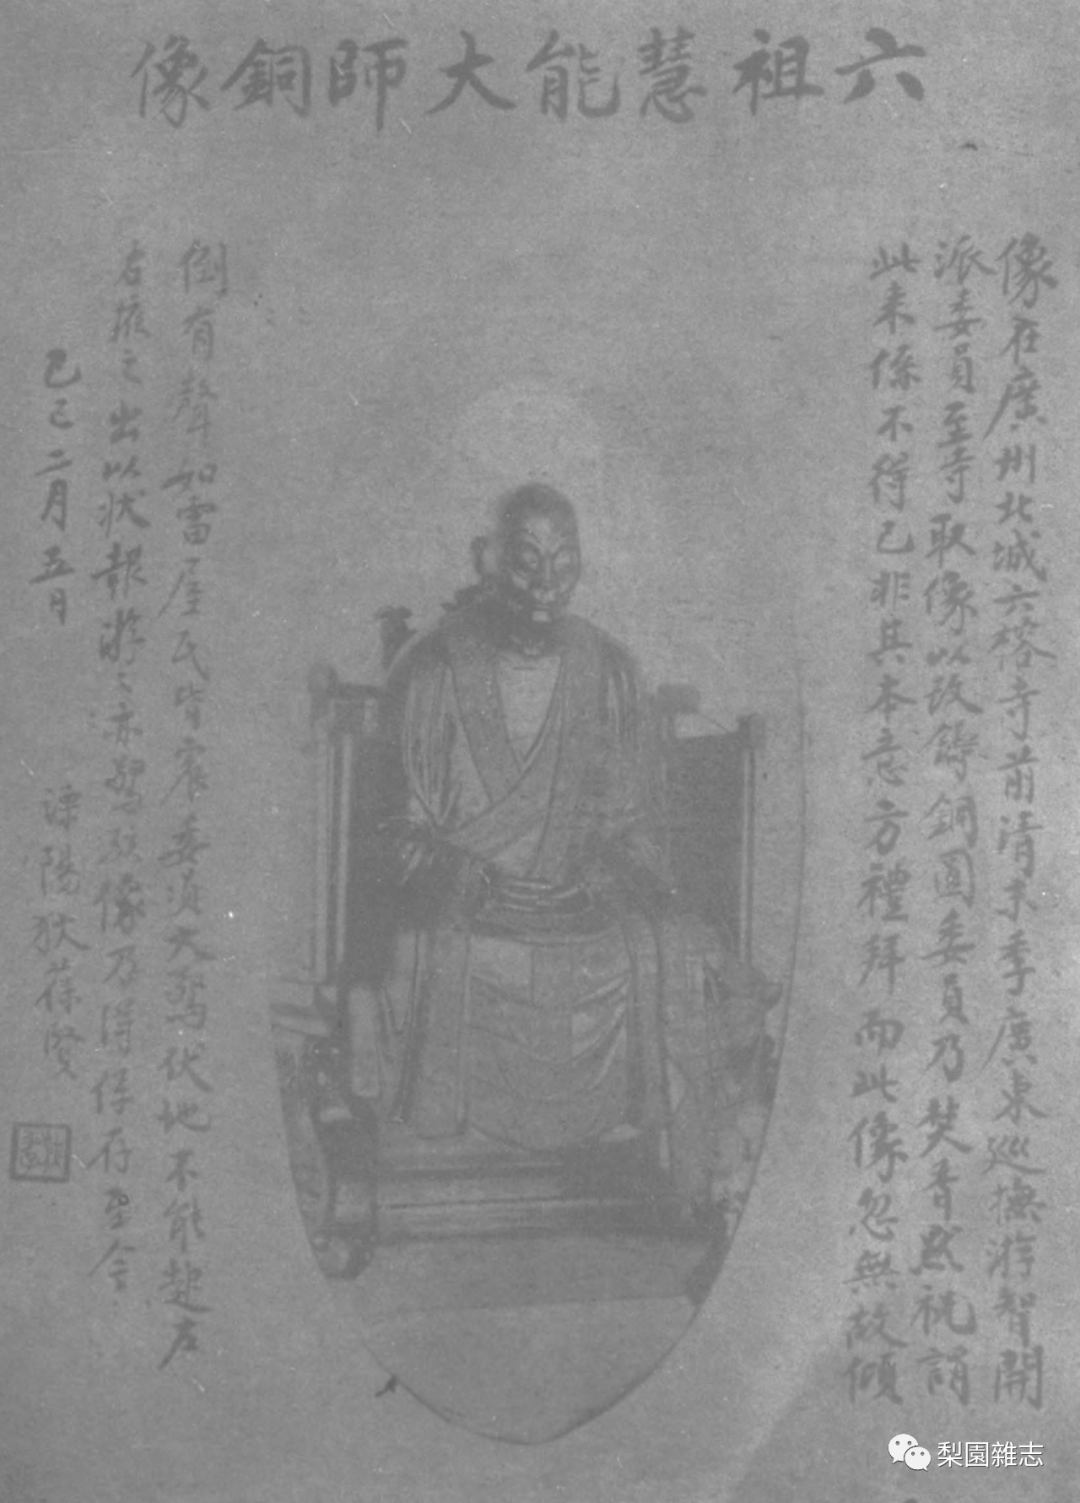 六祖慧能大師銅像
像在廣州北城六榕寺前清末季廣東巡撫游智開
派委員至寺取像以改鑄銅圓委員乃焚香默祝謂
此来係不得已非其本意方禮拜而此像忽無故傾
倒有聲如雷屋瓦皆震委員大驚伏地不能起左
右掖之出以狀報游游亦驚駭像乃得保存至今
己巳二月五日
溧陽狄葆賢
梨園雜志